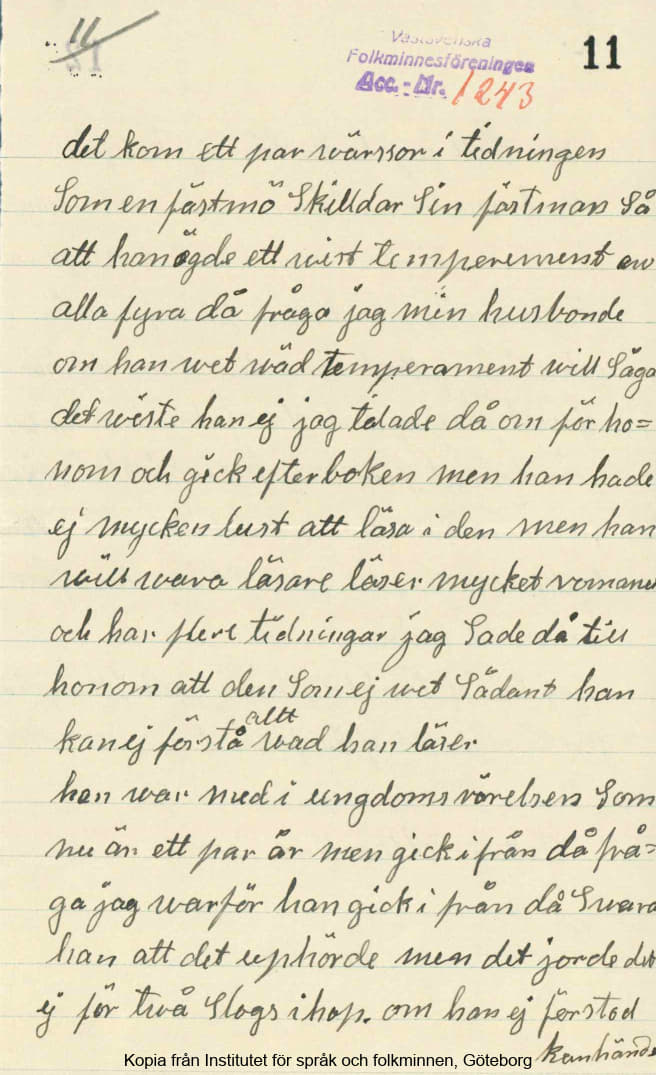 11
11
Västsvenska
Folkminnesföreningen
Acc.-Nr. 1243
det kom ett par wärssor i tidningen
Som en fästmö Skilldar Sin fästman Så
att han ägde ett wist temperement aw
alla fyra då fråga jag min husbonde
om han wet wad temperament will Säga
det wiste han ej jag talade då om för ho=
nom och gick efter boken men han hade
ej mycken lust att läsa i den men han
will wara läsare läser mycket romaner
och har flere tidningar jag Sade då till
honom att den Som ej wet Sådant han
kan ej förstå allt wad han läser
han war med i ungdomsrörelsen Som
nu är ett par år men gick ifrån då frå=
ga jag warför han gick i från då Swara
han att det uphörde men det jorde det
ej för två Slogs ihop. om han ej förstod
kanhända
Kopia från Institutet för språk och folkminnen, Göteborg